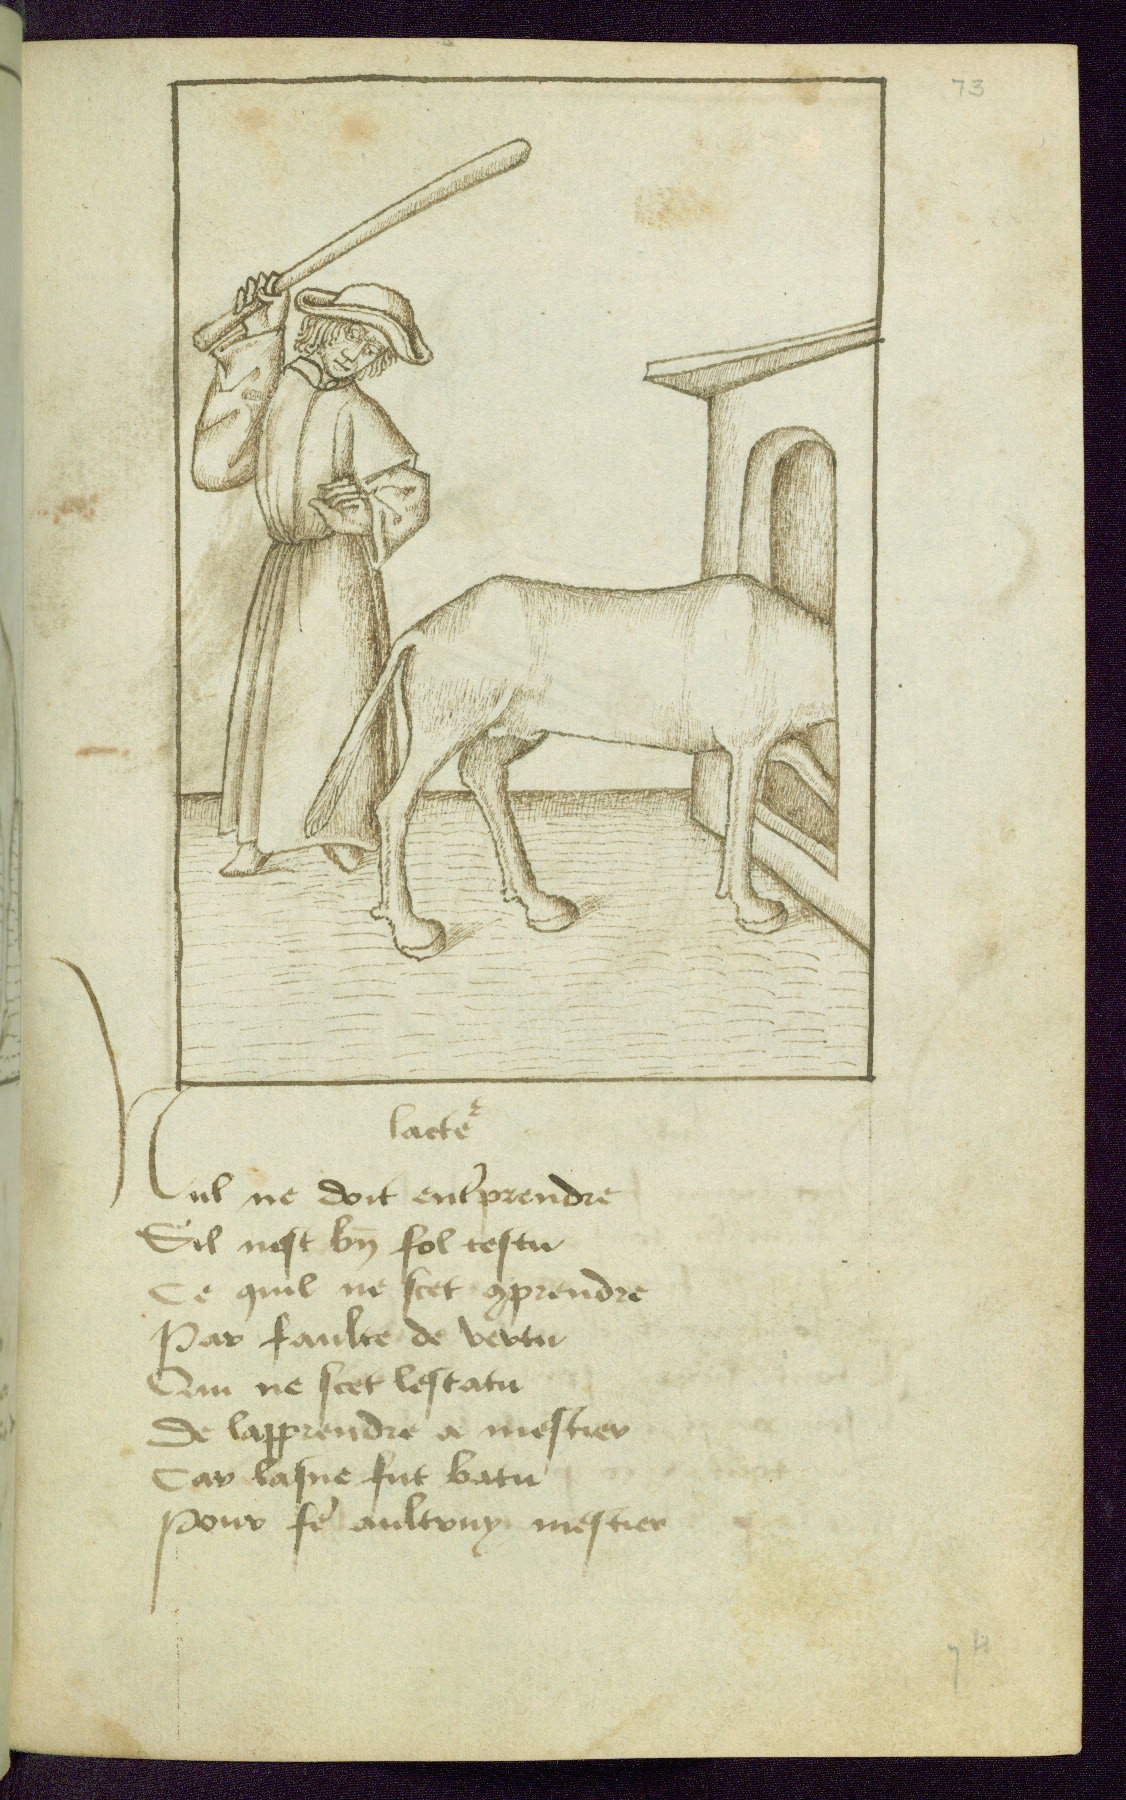 73
lacte^r
Nul ne doit ent'prendre
Sil nest bn̄ fol testu
Ce quil ne scet ꝯprendre
Par faulte de vertu
Qui ne scet lestatu
De lapprendre a mestier
Car lasne fut batu
Pour fe' aultruy mestier